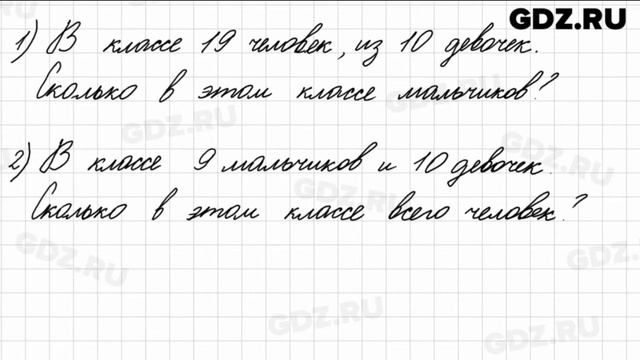 GDZ.RU
1) В классе 19 человек, из 10 девочек.
Сколько в этом классе мальчиков?
GDZ.RU
GDZ.RU
2) В классе 9 мальчиков и 10 девочек.
GDZ.RU
GDZ.RU
Сколько в этом классе всего человек?
GDZ.RU
GDZ.RU
GDZ.RU
GDZ.RU